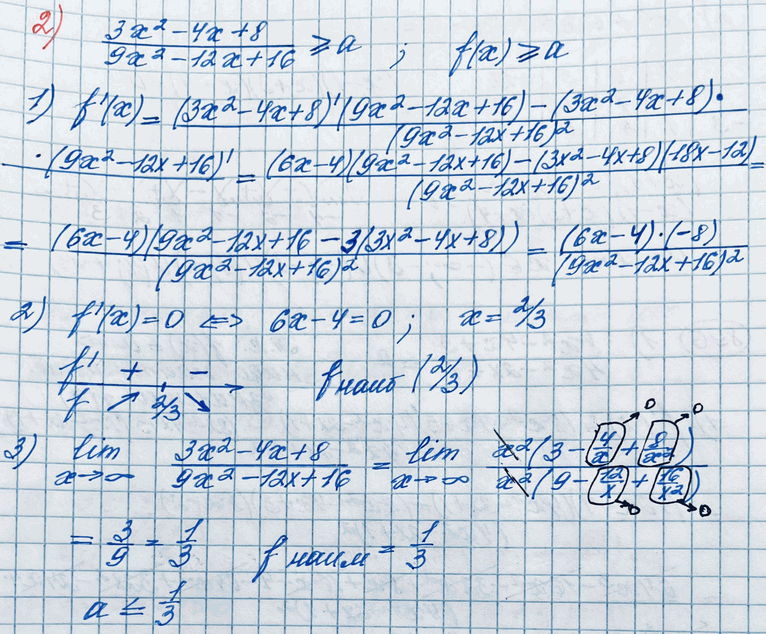 2) (3x² - 4x + 8)/(9x² - 12x + 16) ≥ a ; f(x) ≥ a
1) f'(x) = ((3x² - 4x + 8)'(9x² - 12x + 16) - (3x² - 4x + 8)·
·(9x² - 12x + 16)')/(9x² - 12x + 16)² = ((6x - 4)(9x² - 12x + 16) - (3x² - 4x + 8)(18x - 12))/(9x² - 12x + 16)² =
= ((6x - 4)(9x² - 12x + 16 - 3(3x² - 4x + 8)))/(9x² - 12x + 16)² = ((6x - 4)·(-8))/(9x² - 12x + 16)²
2) f'(x) = 0 ⇔ 6x - 4 = 0 ; x = 2/3
f' + -
f ↗ 2/3 ↘ f наиб (2/3)
3) lim x→∞ (3x² - 4x + 8)/(9x² - 12x + 16) = lim x→∞ (x²(3 - 4/x + 8/x²))/(x²(9 - 12/x + 16/x²)) →0 →0 →0 →0
= 3/9 = 1/3 f наим = 1/3
a ≤ 1/3